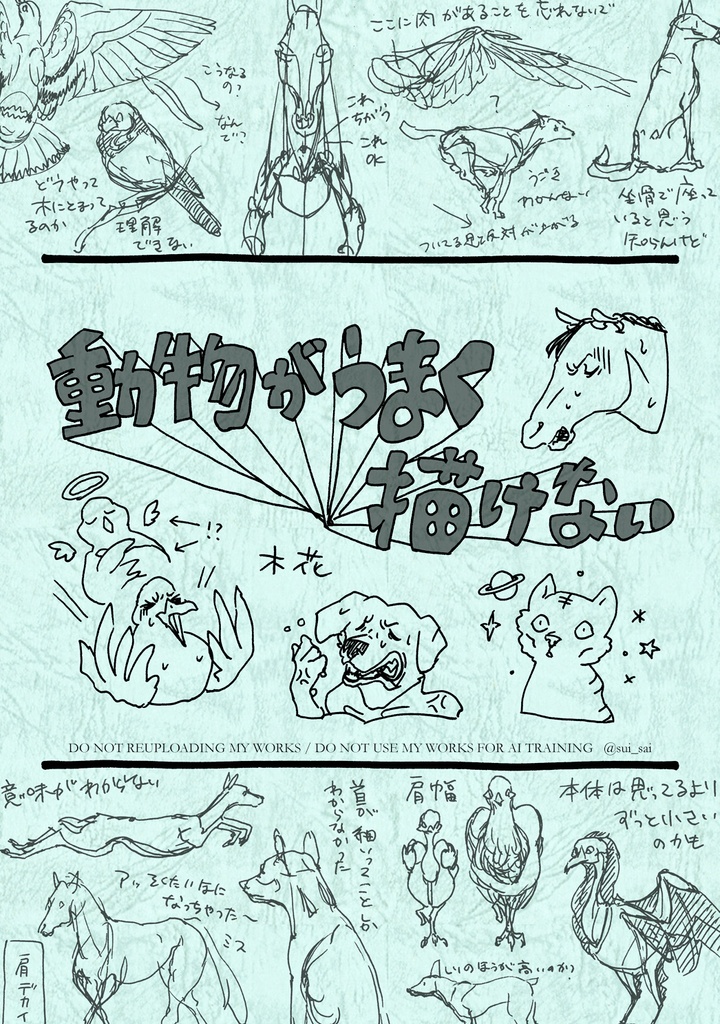 ここに肉があることを忘れないで
こうなるの?
なんで?
これちがう
これOK
?
どうやって
木にとまって
るのか
理解
できない
うごき
わかんない
坐骨で座って
いると思う
知らんけど
動物がうまく
描けない
!?
木花
DO NOT REUPLOADING MY WORKS / DO NOT USE MY WORKS FOR AI TRAINING @sui_sai
意味がわからない
首が細いってことしか
わからなかった
肩幅
本体は思ってるより
ずっと小さい
のかも
なっちゃった〜
ミス
肩デカイ
しりのほうが高いのか?